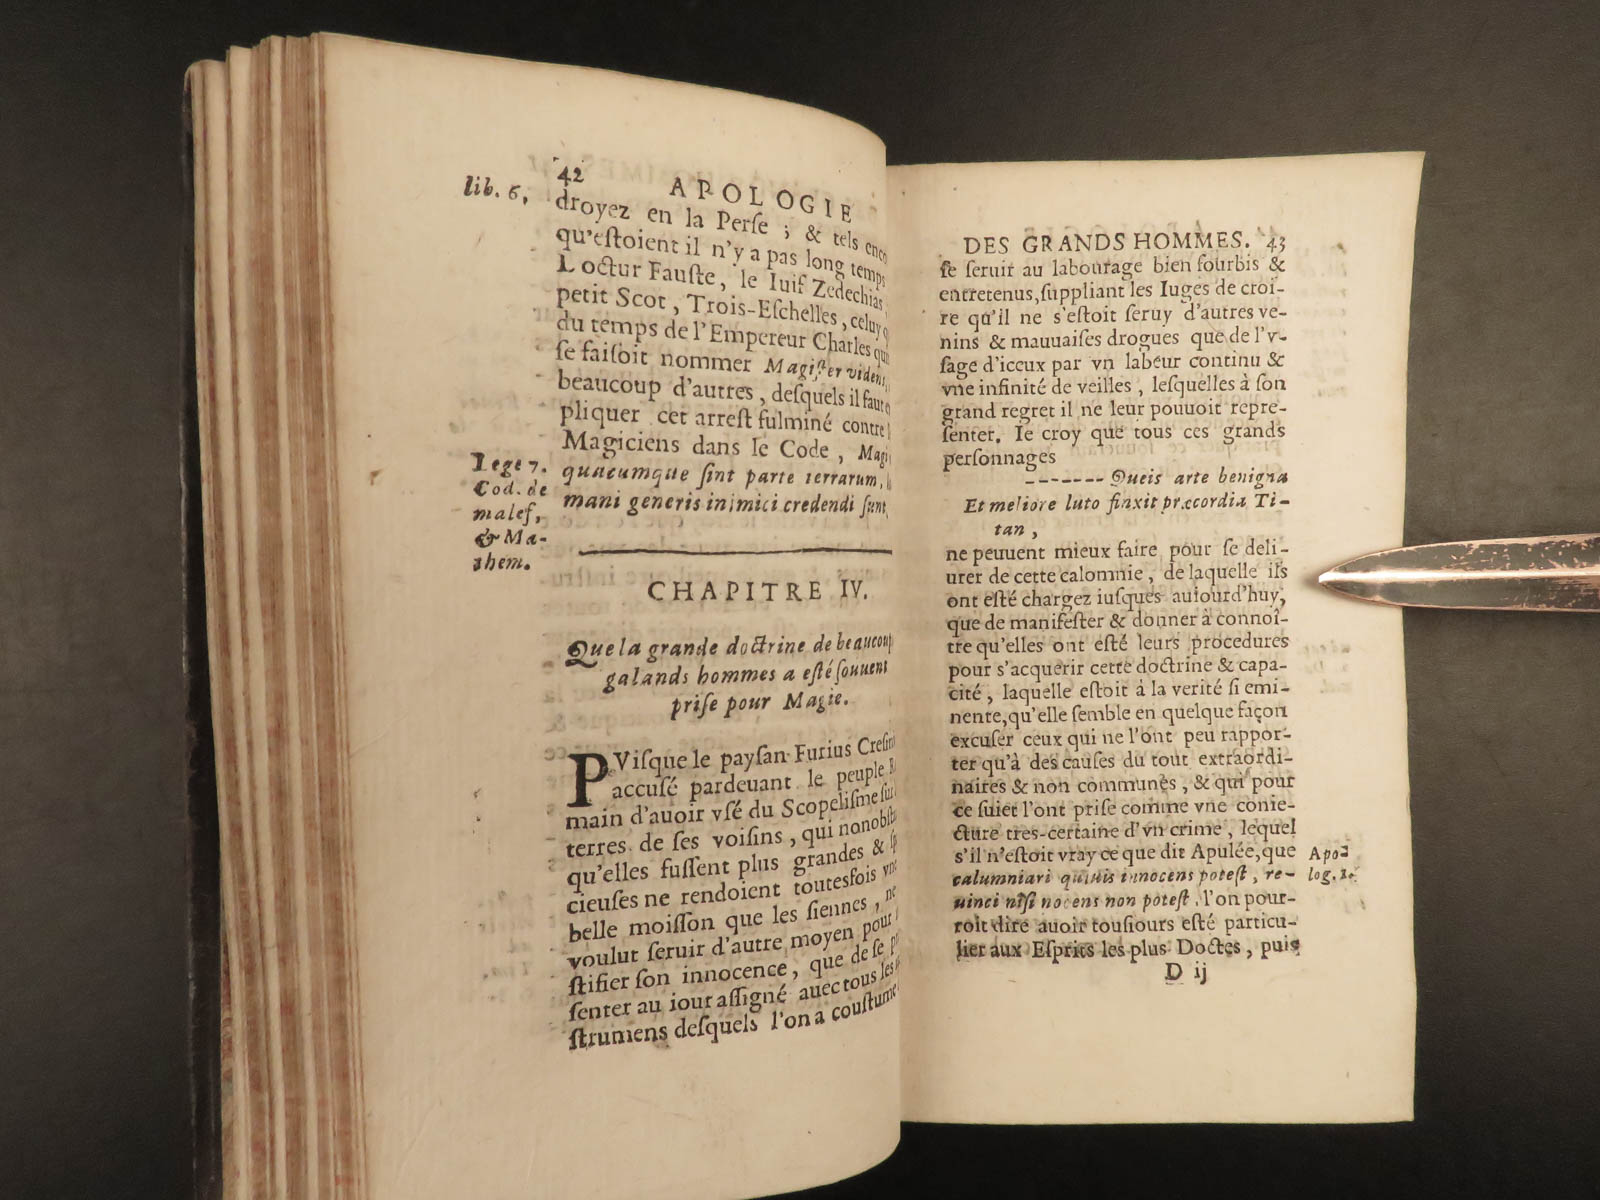 42
APOLOGIE
lib. 6,
droyez en la Perſe ; & tels enco
qu'eſtoient il n'y a pas long temps
Loctur Fauſte, le Iuif Zedechias,
petit Scot, Trois-Eſchelles, celuy q
du temps de l'Empereur Charles qui
ſe faiſoit nommer Magiſter videns,
beaucoup d'autres, deſquels il faut e
pliquer cet arreſt fulminé contre l
Magiciens dans le Code, Magi
Lege 7.
Cod. de
malef,
& Ma-
them.
quacumque ſint parte terrarum, h
mani generis inimici credendi ſunt,
CHAPITRE IV.
Que la grande doctrine de beaucoup
galands hommes a eſté ſouuent
priſe pour Magie.
PViſque le payſan Furius Creſin
accuſé pardeuant le peuple R
main d'auoir vſé du Scopeliſme ſur
terres de ſes voiſins, qui nonobſta
qu'elles fuſſent plus grandes & ſp
cieuſes ne rendoient toutesfois vne
belle moiſſon que les ſiennes, ne
voulut ſeruir d'autre moyen pour
ſtifier ſon innocence, que de ſe p
ſenter au iour aſſigné auec tous les
ſtrumens deſquels l'on a couſtume
DES GRANDS HOMMES. 43
ſe ſeruir au labourage bien fourbis &
entretenus, ſuppliant les Iuges de croi-
re qu'il ne s'eſtoit ſeruy d'autres ve-
nins & mauuaiſes drogues que de l'v-
ſage d'iceux par vn labeur continu &
vne infinité de veilles, leſquelles à ſon
grand regret il ne leur pouuoit repre-
ſenter. Ie croy que tous ces grands
perſonnages
------- Queis arte benigna
Et meliore luto finxit præcordia Ti-
tan,
ne peuuent mieux faire pour ſe deli-
urer de cette calomnie, de laquelle ils
ont eſté chargez iuſques auiourd'huy,
que de manifeſter & donner à connoî-
tre qu'elles ont eſté leurs procedures
pour s'acquerir cette doctrine & capa-
cité, laquelle eſtoit à la verité ſi emi-
nente, qu'elle ſemble en quelque façon
excuſer ceux qui ne l'ont peu rappor-
ter qu'à des cauſes du tout extraordi-
naires & non communes, & qui pour
ce ſuiet l'ont priſe comme vne conie-
cture tres-certaine d'vn crime, lequel
s'il n'eſtoit vray ce que dit Apulée, que
Apo-
log. 1.
calumniari quiuis innocens poteſt, re-
uinci niſi nocens non poteſt, l'on pour-
roit dire auoir touſiours eſté particu-
lier aux Eſprits les plus Doctes, puis
D ij